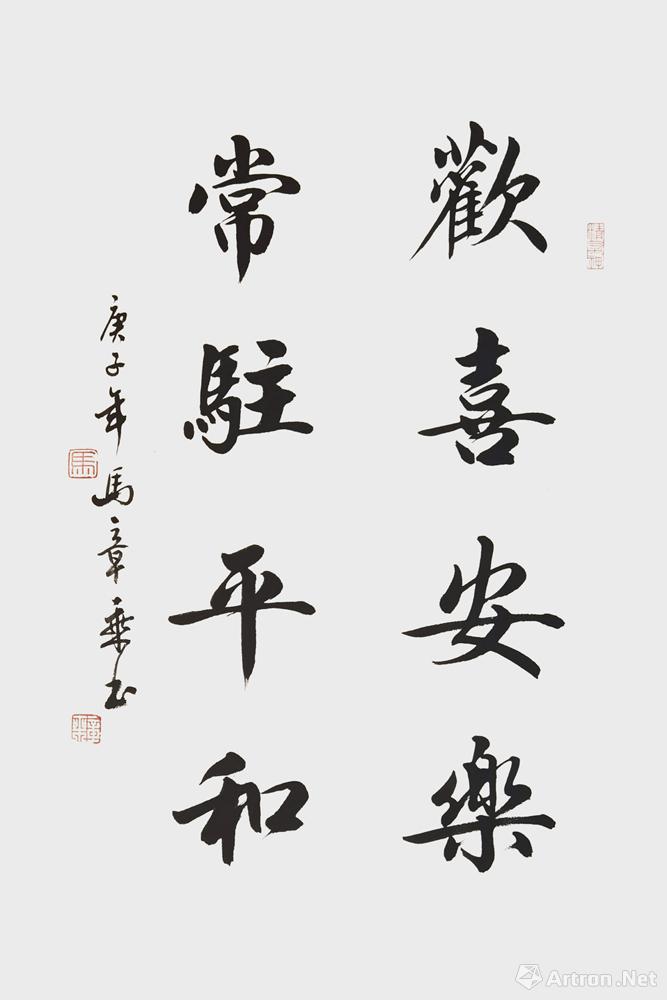 歡喜安樂
常駐平和
庚子年馬章乘书
馬
Artron.Net